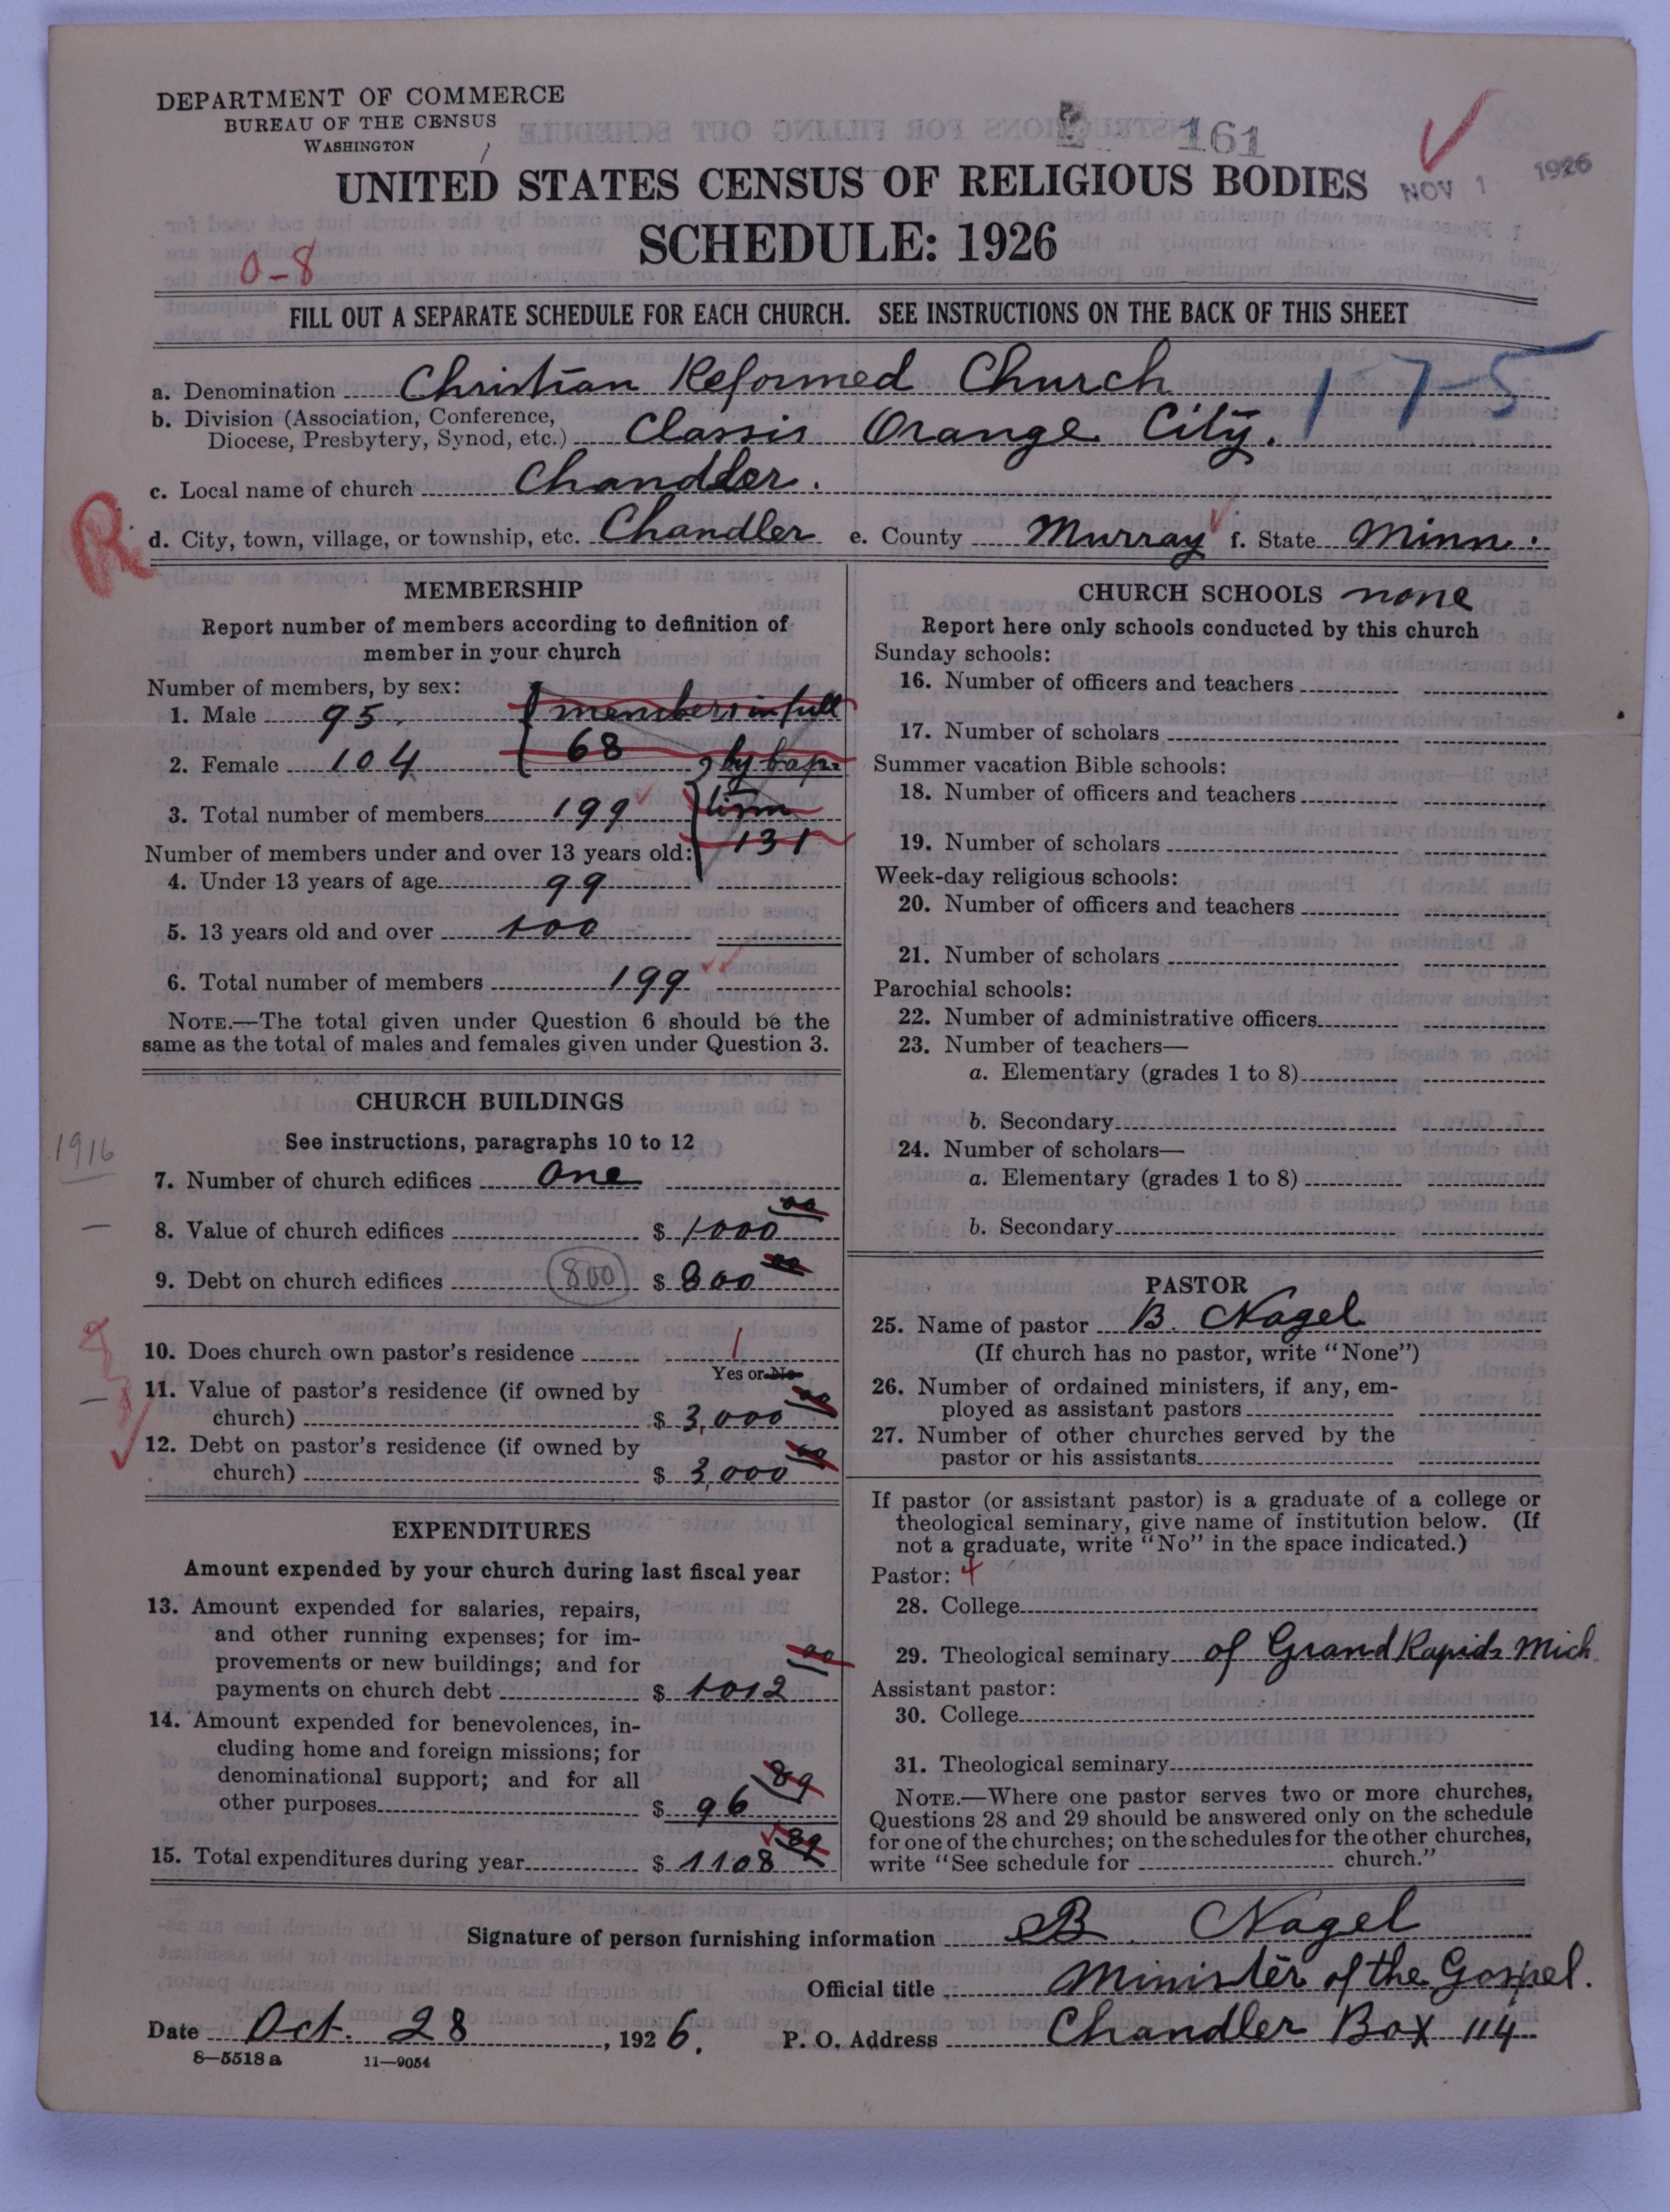 DEPARTMENT OF COMMERCE
BUREAU OF THE CENSUS
WASHINGTON
161
NOV 1 1926
UNITED STATES CENSUS OF RELIGIOUS BODIES
SCHEDULE: 1926
0-8
FILL OUT A SEPARATE SCHEDULE FOR EACH CHURCH. SEE INSTRUCTIONS ON THE BACK OF THIS SHEET
a. Denomination Christian Reformed Church
1-7-5
b. Division (Association, Conference,
Diocese, Presbytery, Synod, etc.) Classis Orange City.
c. Local name of church Chandler.
R
d. City, town, village, or township, etc. Chandler e. County Murray f. State Minn.
MEMBERSHIP
Report number of members according to definition of
member in your church
Number of members, by sex:
1. Male 95. members in full
2. Female 104 68 by bap-
3. Total number of members 199 tism
131
Number of members under and over 13 years old:
4. Under 13 years of age 99
5. 13 years old and over 100
6. Total number of members 199
NOTE.—The total given under Question 6 should be the
same as the total of males and females given under Question 3.
CHURCH BUILDINGS
1916
See instructions, paragraphs 10 to 12
7. Number of church edifices one
8. Value of church edifices $ 1000 00
9. Debt on church edifices 800 $ 800 00
10. Does church own pastor's residence 1
Yes or No
11. Value of pastor's residence (if owned by
church) $ 3,000 00
12. Debt on pastor's residence (if owned by
church) $ 3,000 00
EXPENDITURES
Amount expended by your church during last fiscal year
13. Amount expended for salaries, repairs,
and other running expenses; for im-
provements or new buildings; and for
payments on church debt $ 1012 00
14. Amount expended for benevolences, in-
cluding home and foreign missions; for
denominational support; and for all
other purposes $ 96 89
15. Total expenditures during year $ 1108 89
CHURCH SCHOOLS none
Report here only schools conducted by this church
Sunday schools:
16. Number of officers and teachers
17. Number of scholars
Summer vacation Bible schools:
18. Number of officers and teachers
19. Number of scholars
Week-day religious schools:
20. Number of officers and teachers
21. Number of scholars
Parochial schools:
22. Number of administrative officers
23. Number of teachers—
a. Elementary (grades 1 to 8)
b. Secondary
24. Number of scholars—
a. Elementary (grades 1 to 8)
b. Secondary
PASTOR
25. Name of pastor B. Nagel
(If church has no pastor, write "None")
26. Number of ordained ministers, if any, em-
ployed as assistant pastors
27. Number of other churches served by the
pastor or his assistants
If pastor (or assistant pastor) is a graduate of a college or
theological seminary, give name of institution below. (If
not a graduate, write "No" in the space indicated.)
Pastor: 4
28. College
29. Theological seminary of Grand Rapids Mich.
Assistant pastor:
30. College
31. Theological seminary
NOTE.—Where one pastor serves two or more churches,
Questions 28 and 29 should be answered only on the schedule
for one of the churches; on the schedules for the other churches,
write "See schedule for church."
Signature of person furnishing information B. Nagel
Official title Minister of the Gospel.
Date Oct. 28, 1926. P. O. Address Chandler Box 114
8—5518a 11—9054